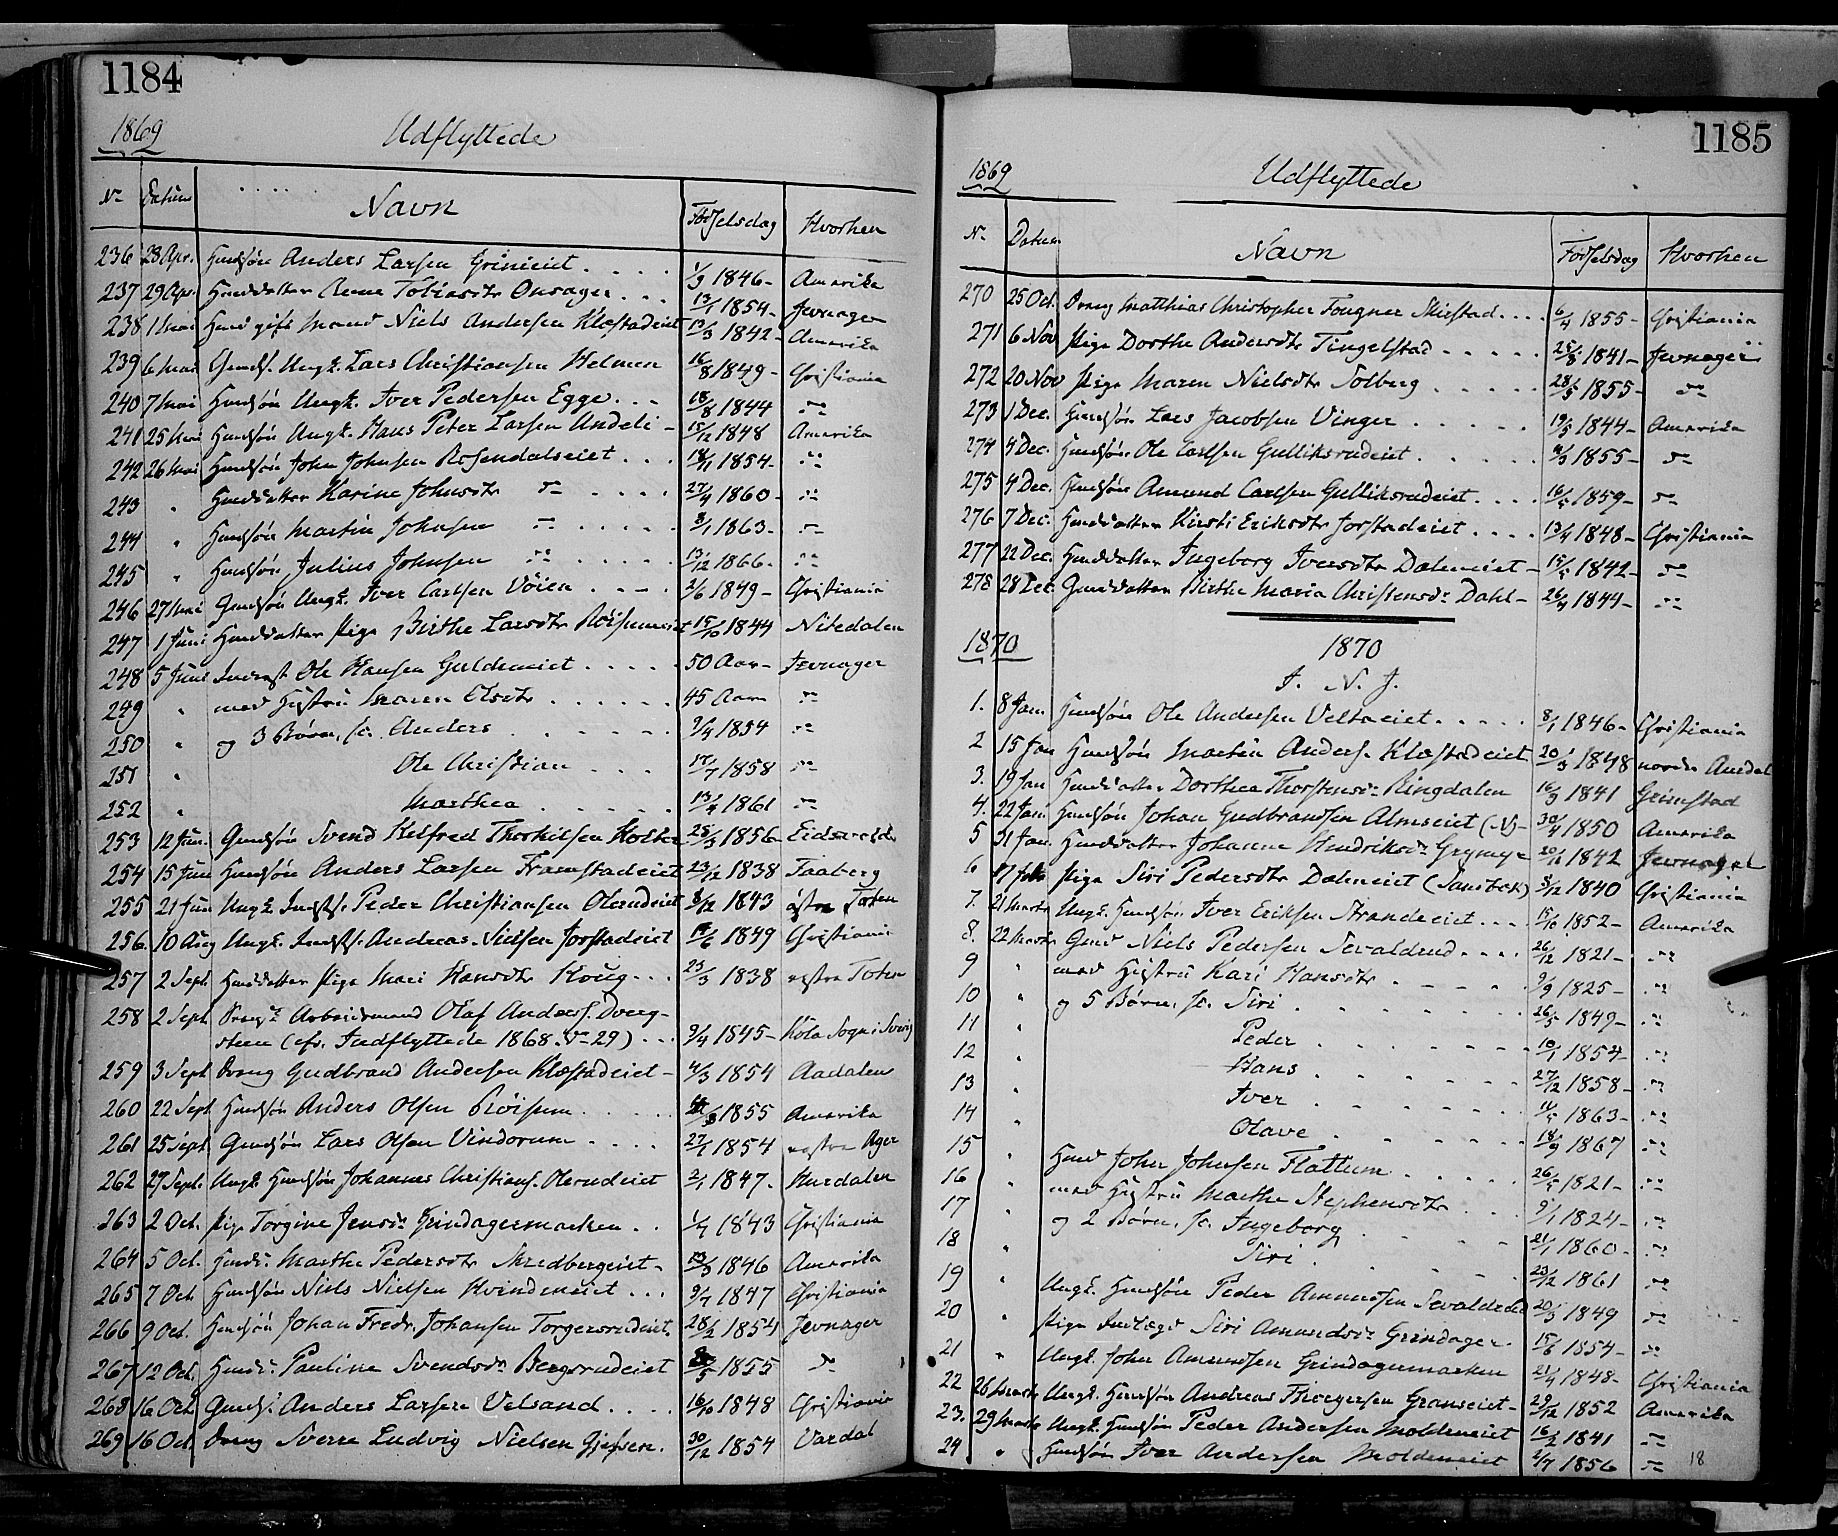 1184
1869
Udflyttede
No Datum Navn Fødselsdag Hvorhen
236 28 Apr. Huussøn Anders Larsen Grinieiet 1/9 1846 - Amerika
237 29 Apr. Huusdatter Anne Tobiasdtr Onsager 13/1 1854 - Jevnager
238 1 Mai Huus gift Mand Niels Andersen Klæstadeiet 13/3 1842 - Amerika
239 6 Mai Gmds. Ungk. Lars Christiansen Helmen 16/8 1849 - Christiania
240 7 Mai Huussøn Ungk. Iver Pedersen Egge 18/8 1844 do
241 25 Mai Huussøn Ungk. Hans Peter Larsen Undeli - 15/12 1848 Amerika
242 26 Mai Huussøn John Johnsen Rosendalseiet 18/1 1854 - do
243 " Huusdatter Karine Johnsdtr do 27/4 1860 - do
244 " Huussøn Martin Johnsen do 3/1 1863 - do
245 " Huussøn Julius Johnsen do 13/12 1866 - do
246 27 Mai Gmdsøn Ungk. Iver Carlsen Vöien 2/6 1849 - Christiania
247 1 Juni Huusdatter Pige Birthe Larsdtr Röisumeiet 15/10 1844 Nitedalen
248 5 Juni Inderst Ole Hansen Guldeneiet 50 Aar - Jevnager
249 " med Hustru Maren Olsdtr 45 Aar do
250 " og 3 Børn, sc. Anders 9/4 1854 do
251 " Ole Christian 17/7 1858 do
252 " Marthea 13/4 1861 do
253 12 Jun. Gmdsøn Svend Helfred Thorkilsen Holter 25/3 1856 - Eidsvold
254 15 Jun Huussøn Anders Larsen Framstadeiet 23/12 1838 Faaberg
255 21 Jun Ungk. Indsts. Peder Christiansen Olerudeiet 8/12 1843 østre Toten
256. 10 Aug Ungk. Indsts. Andreas Nielsen Jorstadeiet 17/6 1849 Christiania
257 2 Sept Huusdatter Pige Mari Hansdtr Houg 23/3 1838 vestre Toten
258 2 Sept Arbeidsmand Olaf Anders. Dverg-
steen (cfr. Indflyttede 1868. No 29) 9/4 1845 - Köla Sogn i Sverig
259 3 Sept Dreng Gudbrand Andersen Klæstadeiet - 4/3 1854 Aadalen
260 22 Sept Huussøn Anders Olsen Röisum 1855 Amerika
261 25 Sept Gmdsøn Lars Olsen Vindorum 27/1 1854 vestre Ager
262 29 Sept. Ungk. Huussøn Johannes Christians. Olerudeiet 2/1 1847 - Hurdalen
263 2 Oct. Pige Torgine Jensdr Grindagermarken 1/7 1843 Christiania
264 5 Oct. Huusd. Marthe Pedersdtr Skredbergeiet - 13/3 1846 Amerika
265 7 Oct Huussøn Niels Nielsen Hvindeneiet 9/7 1847 Christiania
266 9 Oct. Huussøn Johan Fredr. Johansen Torgersrudeiet. 28/2 1854 Jevnager
267 12 Oct. Huusd. Pauline Svendsdr Bergsrudeiet 1855 do
268 16 Oct Gmds. Anders Larsen Velsand 16/10 1848 Christiania
269 16 Oct. Dreng Sverre Ludvig Nielsen Gjefsen. 30/12 1854 Vardal
1185
1869
Udflyttede
No Datum Navn Fødselsdag Hvorhen
270 25 Oct. Dreng Matthias Christopher Fougner Skiestad 6/4 1855 - Christiania
271 6 Nov Pige Dorthe Andersdtr Tingelstad 25/8 1841 - Jevnager
272 20 Nov Pige Maren Nielsdtr Solberg 28/5 1855 - do
273 1 Dec. Huussøn Lars Jacobsen Vinger 19/5 1844 - Amerika
274 4 Dec. Huussøn Ole Carlsen Gulliksrudeiet 8/3 1855 - do
275 4 Dec. Huussøn Amund Carlsen Gulliksrudeiet 16/5 1859 - do
276 7 Dec. Huusdatter Kirsti Eriksdtr Jorstadeiet 13/4 1848 - Christiania
277 22 Dec. Huusdatter Ingeborg Iversdtr Dalineiet - 15/5 1842 - do
278 28 Dec. Gmdsdatter Birthe Maria Christensdr Dahl - 26/4 1844 - do
1870 1870
I. N. J.
1. 8 Jan. Huussøn Ole Andersen Velteneiet 8/1 1846 - Christiania
2 15 Jan Huussøn Martin Anders. Klæstadeiet 20/3 1848 nordre Aurdal
3. 19 Jan Huusdatter Dorthea Thorstensdr Ringdalen 16/9 1841 Grimstad
4. 22 Jan. Huussøn Johan Gudbrandsen Almseiet (N) - 30/4 1850 Amerika
5 31 Jan. Huusdatter Johanne Hendriksdr Grymyr 1842 Jevnager
6 17 Feb Pige Siri Pedersdtr Dalineiet 3/12 1840 Christiania
7. 21 Marts Ungk. Huussøn Iver Eriksen Strandeiet 15/10 1852 - Amerika
8. 22 Marts Gmd Niels Pedersen Sevaldrud 26/12 1821 - do
9 " med Hustru Kari Hansdtr 9/9 1825 - do
10 " og 5 Børn, sc. Siri 26/5 1849 - do
11 " Peder 10/1 1854 - do
12 " Hans 27/12 1858 - do
13 " Iver 11/5 1863 - do
14 " Olave 18/9 1867 do
15 " Huusmd John Johnsen Flattum 26/5 1821 - do
16 " med Hustru Marthe Stephensdtr 9/1 1824 - do
17 " og 2 Børn, sc. Ingeborg 21/1 1860 - do
18 " Siri 23/12 1861 do
19 " Ungk. Huussøn Peder Amundsen Sevaldrud 20/3 1849 do
20 " Pige Indlagt Siri Amundsdr Grindager 15/6 1854 - do
21 " Ungk. John Amundsen Grindagermarken 21/4 1848 - Christiania
22 26 Marts Ungk. Huussøn Andreas Thorgersen Graneeiet - 29/12 1852 Amerika
23. 29 Marts Ungk. Huussøn Peder Andersen Moldeneiet 16/2 1841 do
24 " Huussøn Iver Andersen Moldeneiet 2/7 1856 do
18